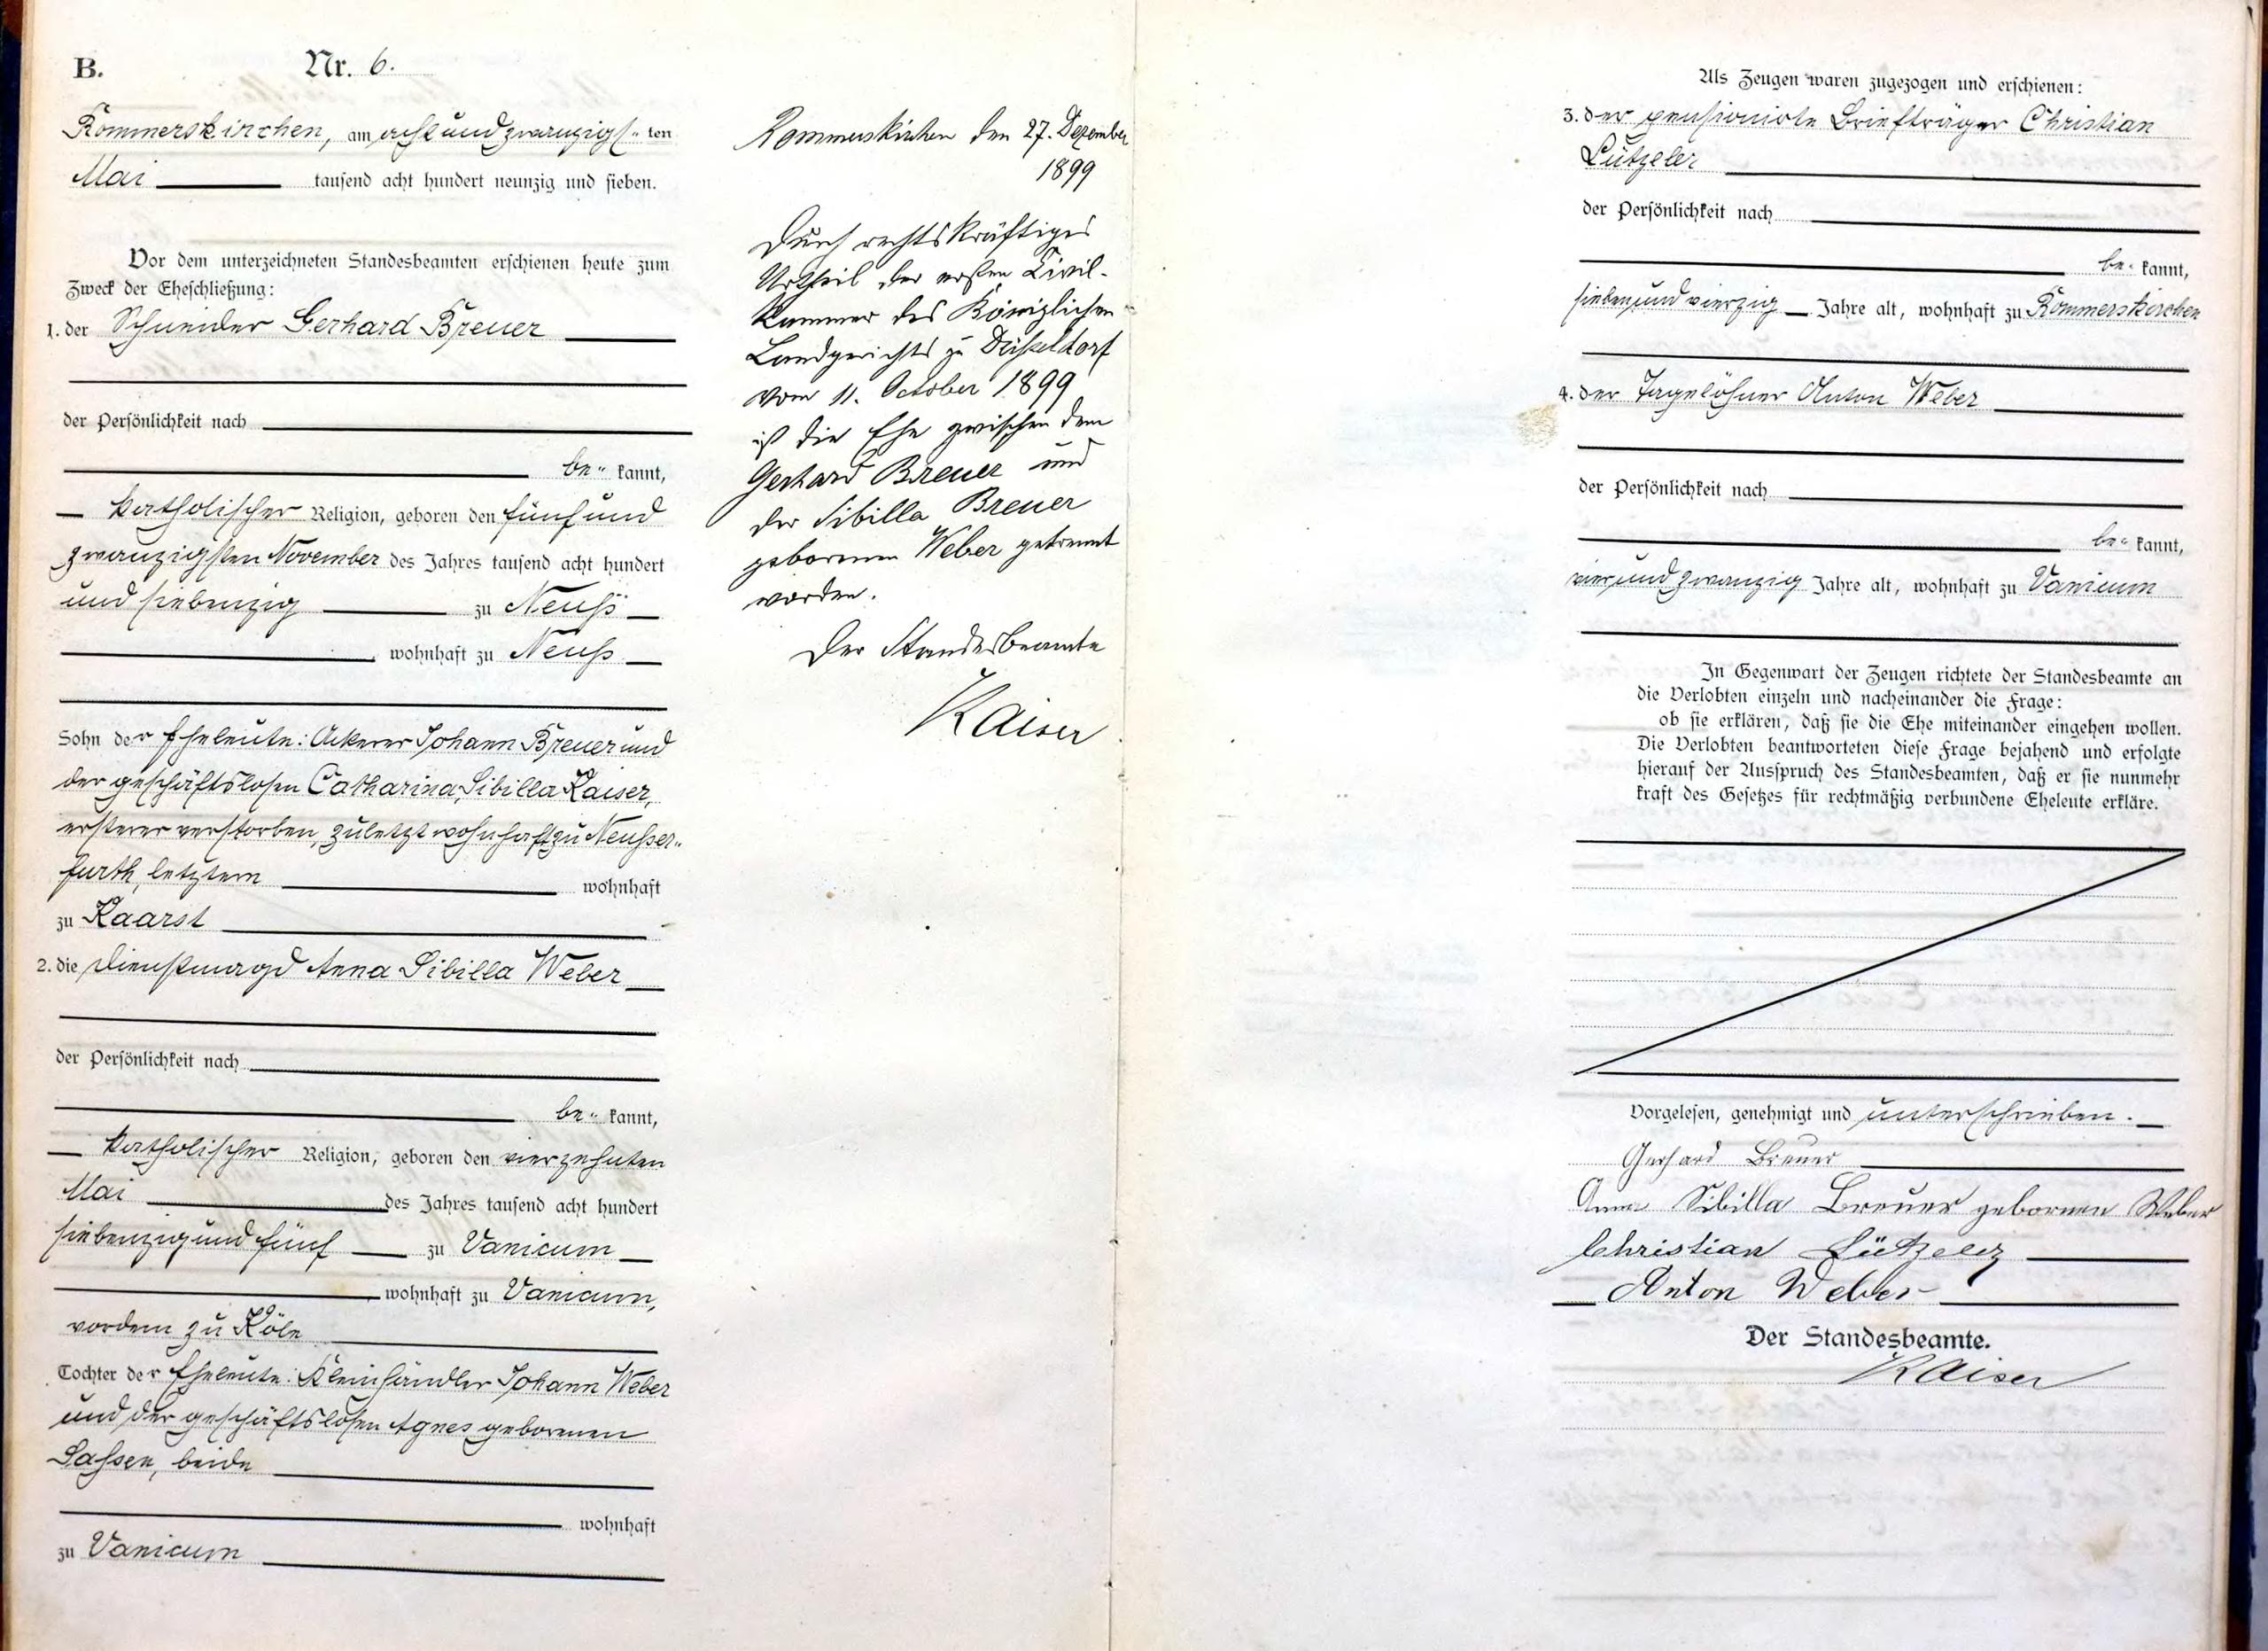 B. Nr. 6.
Rommerskirchen, am acht und zwanzigs„ten
Mai tausend acht hundert neunzig und sieben.
Vor dem unterzeichneten Standesbeamten erschienen heute zum
Zweck der Eheschließung:
1. der Schneider Gerhard Breuer
der Persönlichkeit nach
be„kannt,
katholischer Religion, geboren den fünf und
zwanzigsten November des Jahres tausend acht hundert
und siebenzig zu Neuß
wohnhaft zu Neuß
Sohn der Eheleute: Ackerer Johann Breuer und
der geschäftslosen Catharina Sibilla Kaiser,
ersterer verstorben, zuletzt wohnhaft zu Neußer„
furth, letztere wohnhaft
zu Kaarst
2. die Dienstmagd Anna Sibilla Weber
der Persönlichkeit nach
be„kannt,
katholischer Religion, geboren den vierzehnten
Mai des Jahres tausend acht hundert
siebenzig und fünf zu Vanicum
wohnhaft zu Vanicum,
vordem zu Köln
Tochter der Eheleute: Kleinhändler Johann Weber
und der geschäftslosen Agnes geborenen
Saßsen, beide
wohnhaft
zu Vanicum
Rommerskirchen den 27. Dezember
1899
Durch rechtskräftiges
Urtheil der ersten Civil-
kammer des Königlichen
Landgerichts zu Düsseldorf
vom 11. October 1899
ist die Ehe zwischen dem
Gerhard Breuer und
der Sibilla Breuer
geborenen Weber getrennt
worden.
Der Standesbeamte
Kaiser
Als Zeugen waren zugezogen und erschienen:
3. der pensionirte Briefträger Christian
Lützeler
der Persönlichkeit nach
be„kannt,
sieben und vierzig Jahre alt, wohnhaft zu Rommerskirchen
4. der Tagelöhner Anton Weber
der Persönlichkeit nach
be„kannt,
vier und zwanzig Jahre alt, wohnhaft zu Vanicum
In Gegenwart der Zeugen richtete der Standesbeamte an
die Verlobten einzeln und nacheinander die Frage:
ob sie erklären, daß sie die Ehe miteinander eingehen wollen.
Die Verlobten beantworteten diese Frage bejahend und erfolgte
hierauf der Ausspruch des Standesbeamten, daß er sie nunmehr
kraft des Gesetzes für rechtmäßig verbundene Eheleute erkläre.
Vorgelesen, genehmigt und unterschrieben.
Gerhard Breuer
Anna Sibilla Breuer geborenen Weber
Christian Lützeler
Anton Weber
Der Standesbeamte.
Kaiser